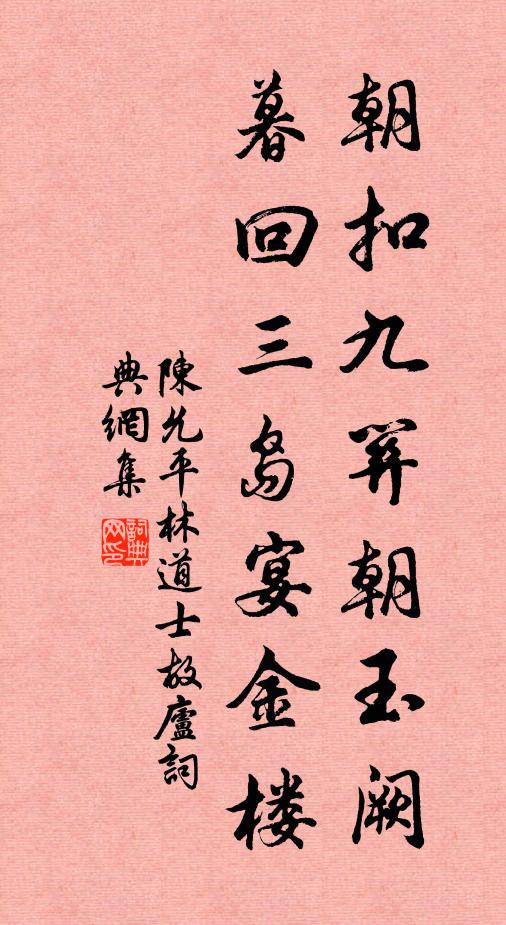 朝扣九关朝玉阙
暮回三岛宴金楼
陳允平林道士故廬詞
典網集
詞典網印